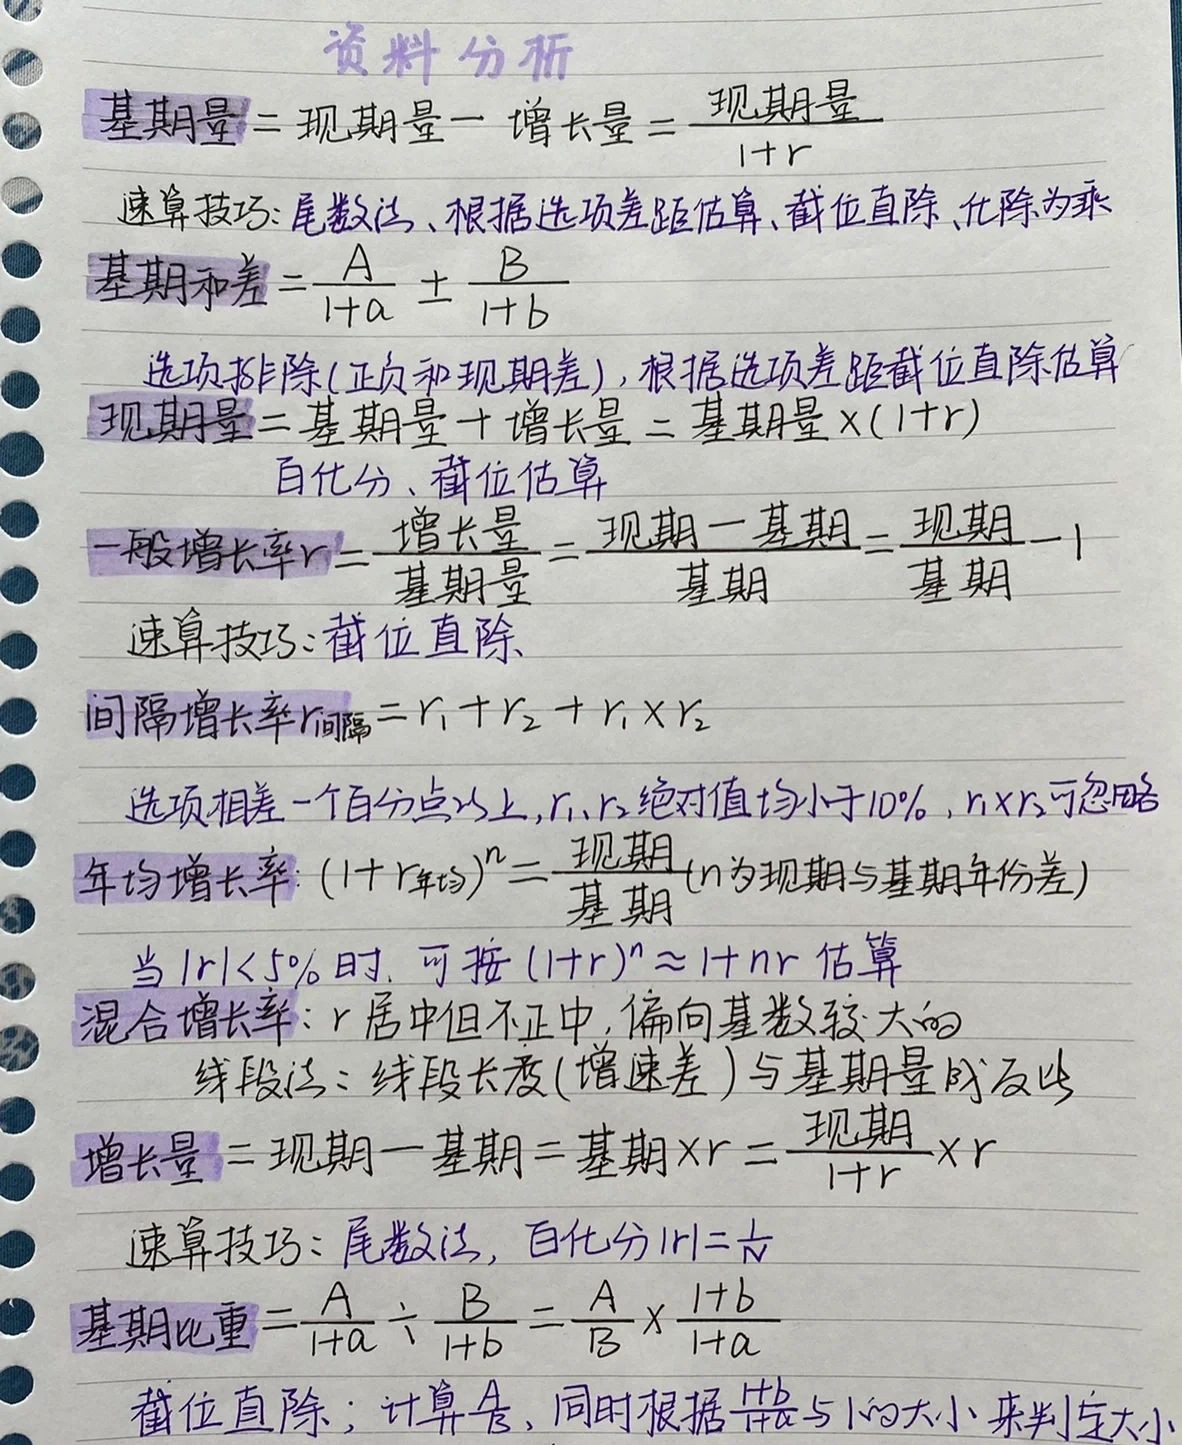 资料分析
基期量 = 现期量 - 增长量 = 现期量/(1+r)
速算技巧: 尾数法、根据选项差距估算、截位直除、化除为乘
基期和差 = A/(1+a) ± B/(1+b)
选项排除(正负和现期差), 根据选项差距截位直除估算
现期量 = 基期量 + 增长量 = 基期量×(1+r)
百化分、截位估算
一般增长率r = 增长量/基期量 = (现期-基期)/基期 = 现期/基期 - 1
速算技巧: 截位直除
间隔增长率r间隔 = r₁+r₂+r₁×r₂
选项相差一个百分点以上, r₁、r₂绝对值均小于10%, r₁×r₂可忽略
年均增长率: (1+r年均)ⁿ = 现期/基期 (n为现期与基期年份差)
当|r|<5%时, 可按(1+r)ⁿ≈1+nr估算
混合增长率: r居中但不正中, 偏向基数较大的
线段法: 线段长度(增速差)与基期量成反比
增长量 = 现期-基期 = 基期×r = 现期/(1+r)×r
速算技巧: 尾数法, 百化分|r|=1/N
基期比重 = A/(1+a) ÷ B/(1+b) = A/B × (1+b)/(1+a)
截位直除; 计算A/B, 同时根据(1+b)/(1+a)与1的大小来判定大小